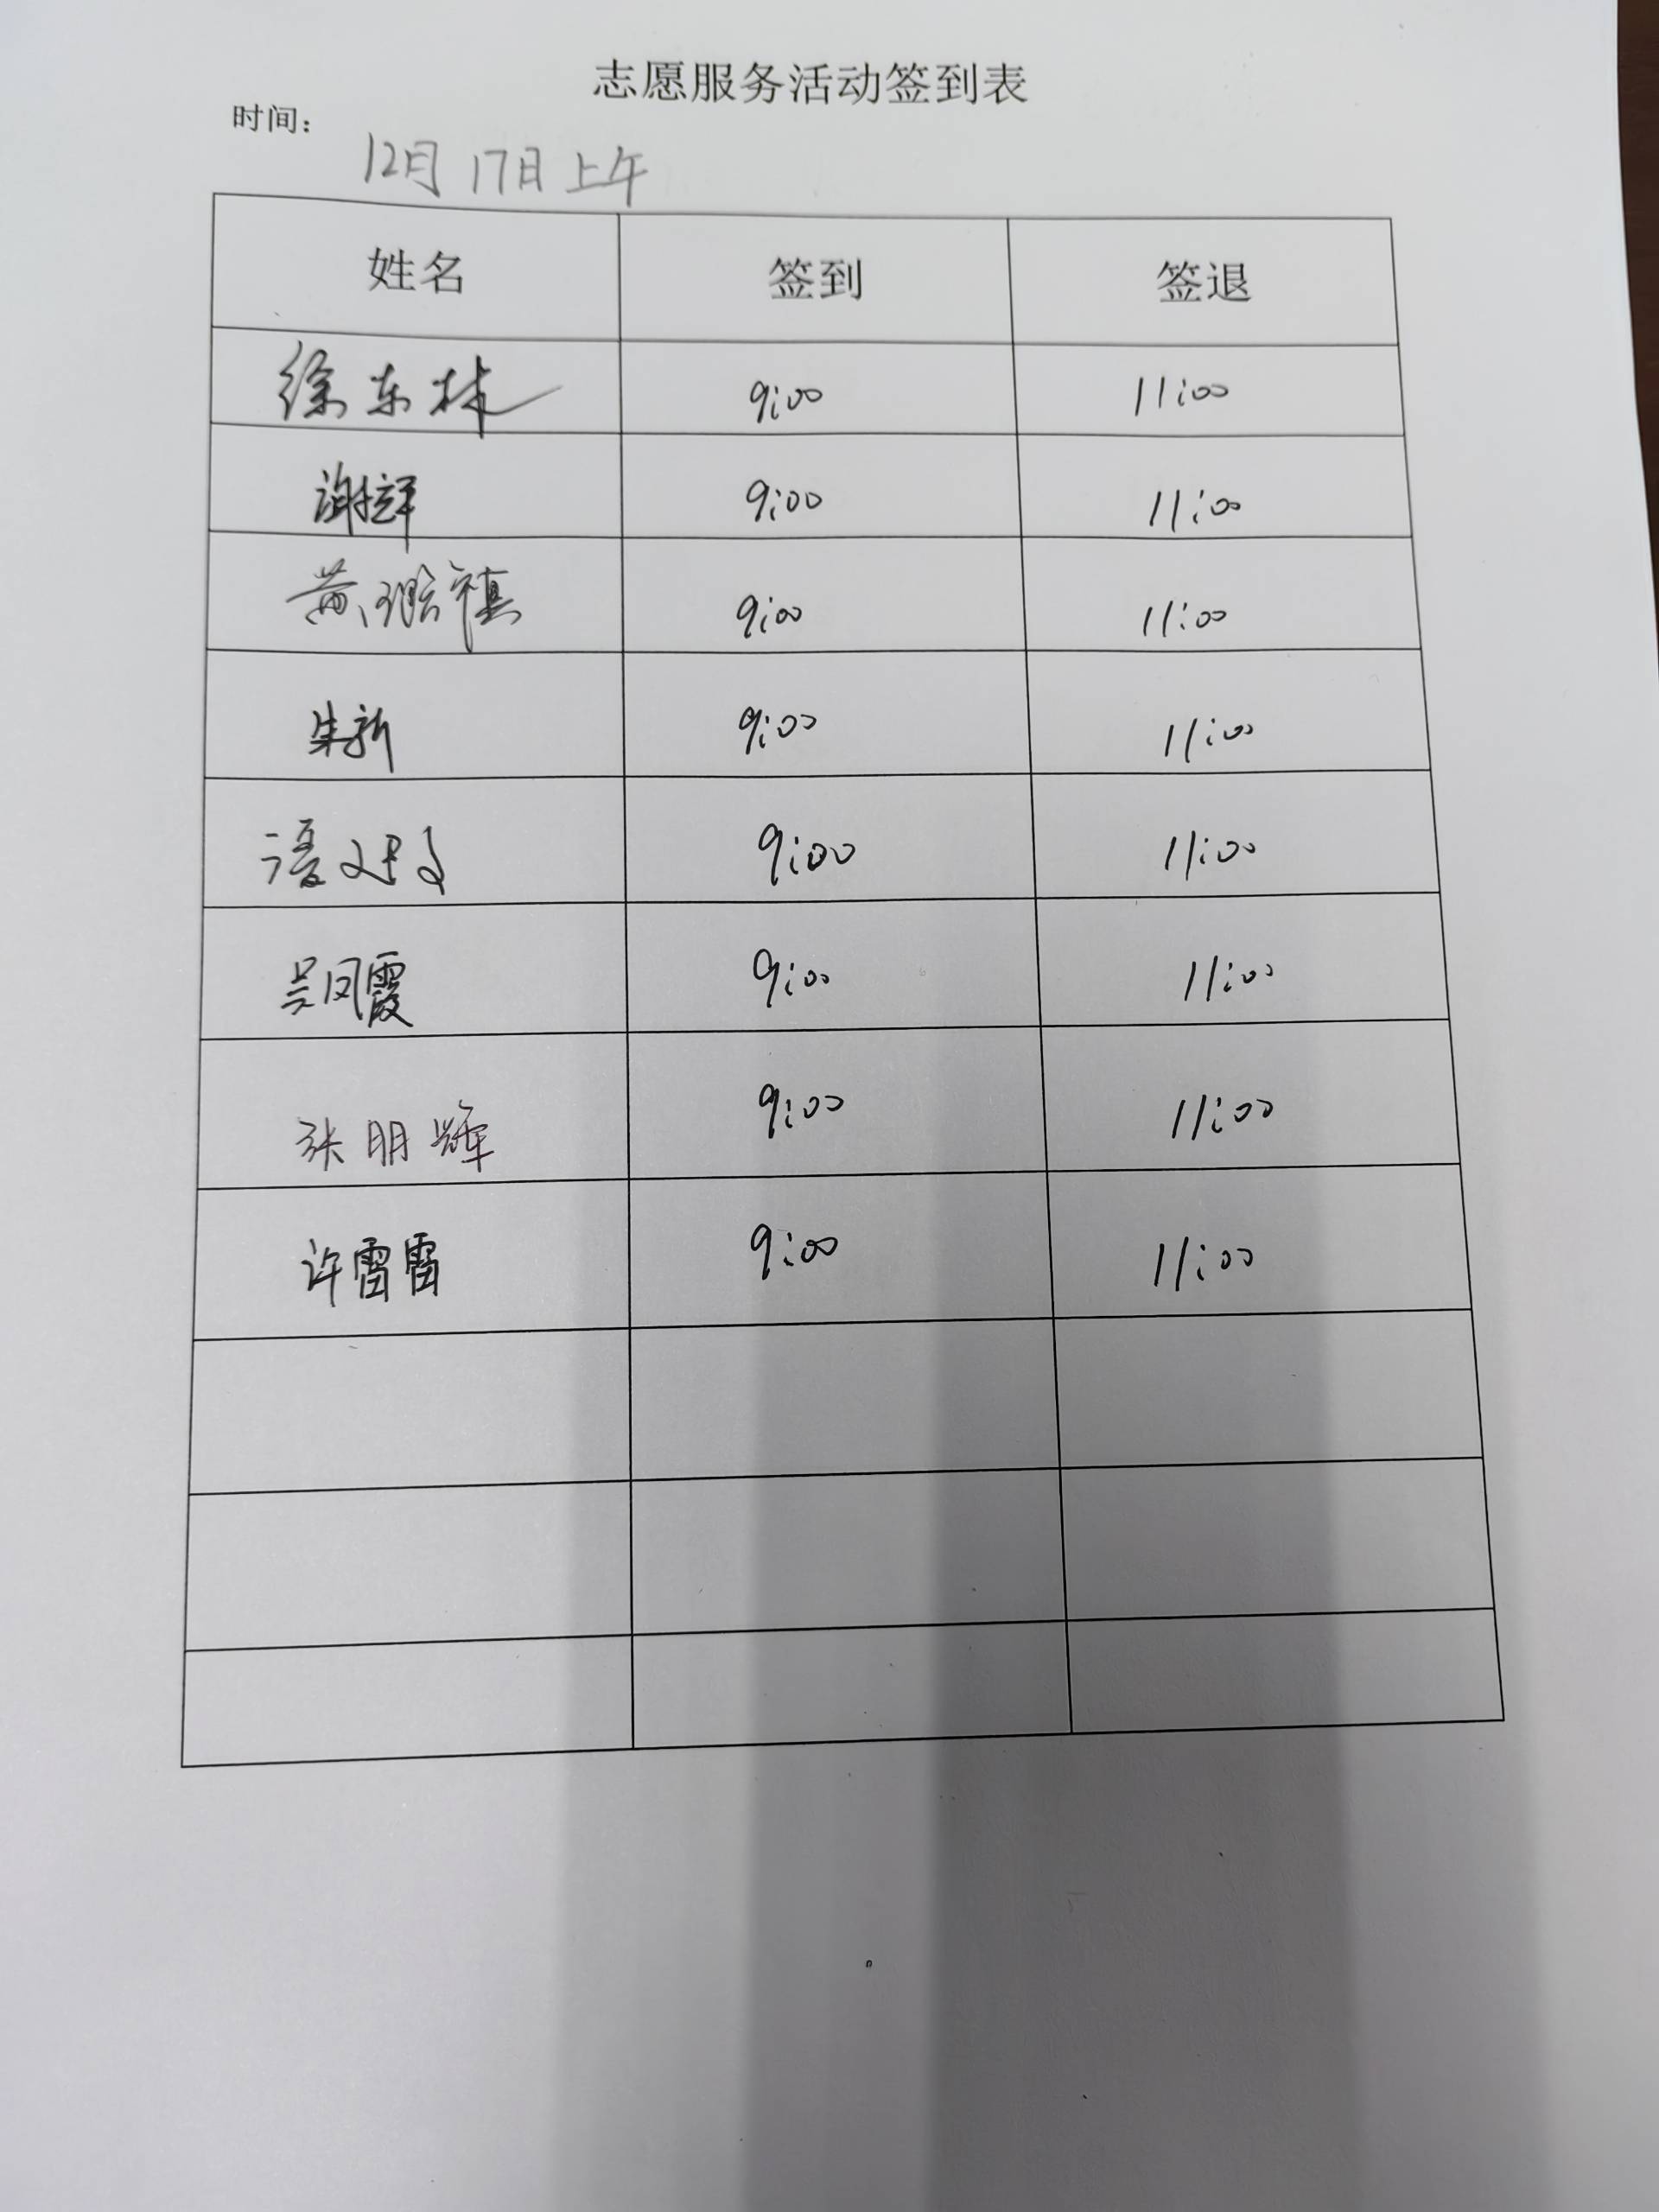 志愿服务活动签到表
时间：
12月17日上午
姓名 签到 签退
徐东林 9:00 11:00
9:00 11:00
黄 禛 9:00 11:00
朱新 9:00 11:00
9:00 11:00
吴凤霞 9:00 11:00
张明辉 9:00 11:00
许雷雷 9:00 11:00